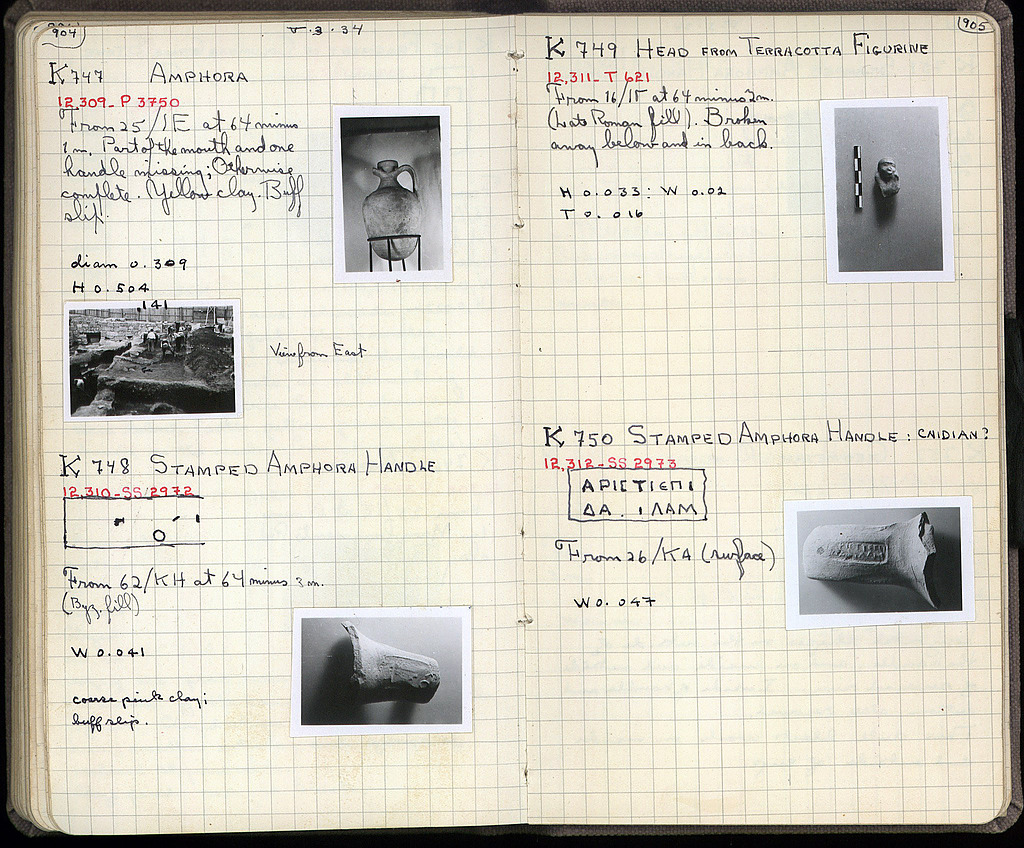 904
V·3·34
K 747 AMPHORA
12,309-P 3750
From 25/ΙΕ at 64 minus
1m. Part of the mouth and one
handle missing; Otherwise
complete. Yellow clay. Buff
slip.
diam 0.309
H 0.504
141
View from East
K 748 STAMPED AMPHORA HANDLE
12,310-SS 2972
Ο
From 62/ΚΗ at 64 minus 3m.
(Byz. fill)
W 0.041
coarse pink clay;
buff slip.
905
K 749 HEAD FROM TERRACOTTA FIGURINE
12,311-T 621
From 16/ΙΓ at 64 minus 2m.
(Late Roman fill). Broken
away below and in back.
H 0.033: W 0.02
T 0.016
K 750 STAMPED AMPHORA HANDLE: CNIDIAN?
12,312-SS 2973
ΑΡΙΣΤΙΕΠΙ
ΔΑ.ΙΛΑΜ
From 26/ΚΑ (surface)
W 0.047